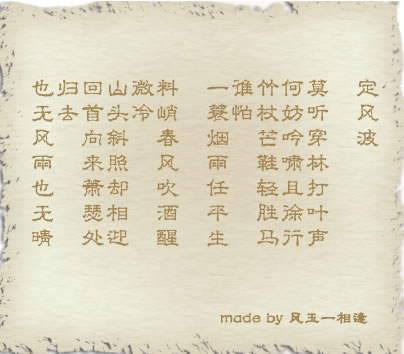 定风波
莫听穿林打叶声
何妨吟啸且徐行
竹杖芒鞋轻胜马
谁怕
一蓑烟雨任平生
料峭春风吹酒醒
微冷
山头斜照却相迎
回首向来萧瑟处
归去
也无风雨也无晴
made by 风玉一相逢